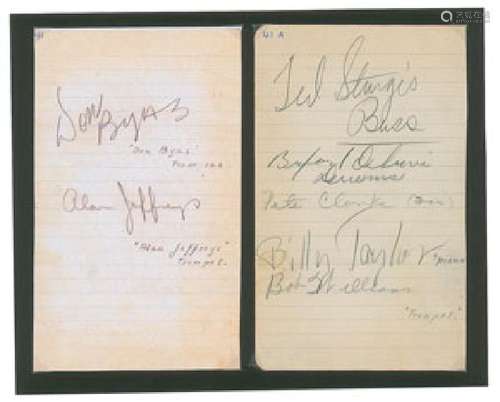 41
Don Byas
"Don Byas"
Tenor sax
Alan Jeffreys
"Alan Jeffreys"
Trumpet.
41 A
Ted Sturgis
Bass
Drums
Pete Clarke
Billy Taylor "piano
Bob Williams
"Trumpet."